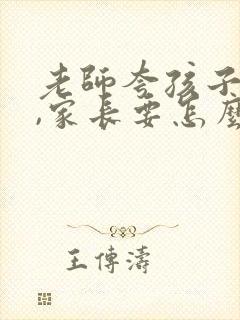 老師夸孩子
,家長要怎麼
王傳濤